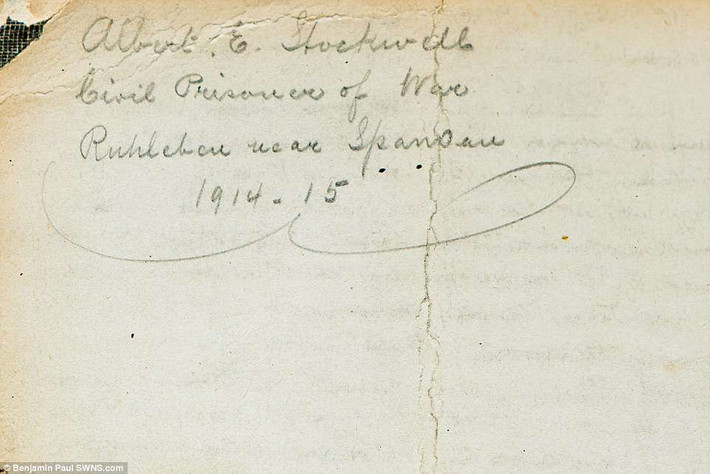 Albert. E. Stockwell
Civil Prisoner of War
Ruhleben near Spandau
1914-15
© Benjamin Paul SWNS.com